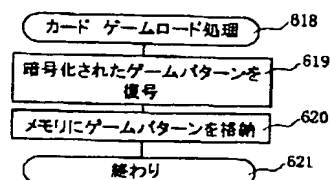 カード ゲームロード処理
618
暗号化されたゲームパターンを
復号
619
メモリにゲームパターンを格納
620
終わり
621